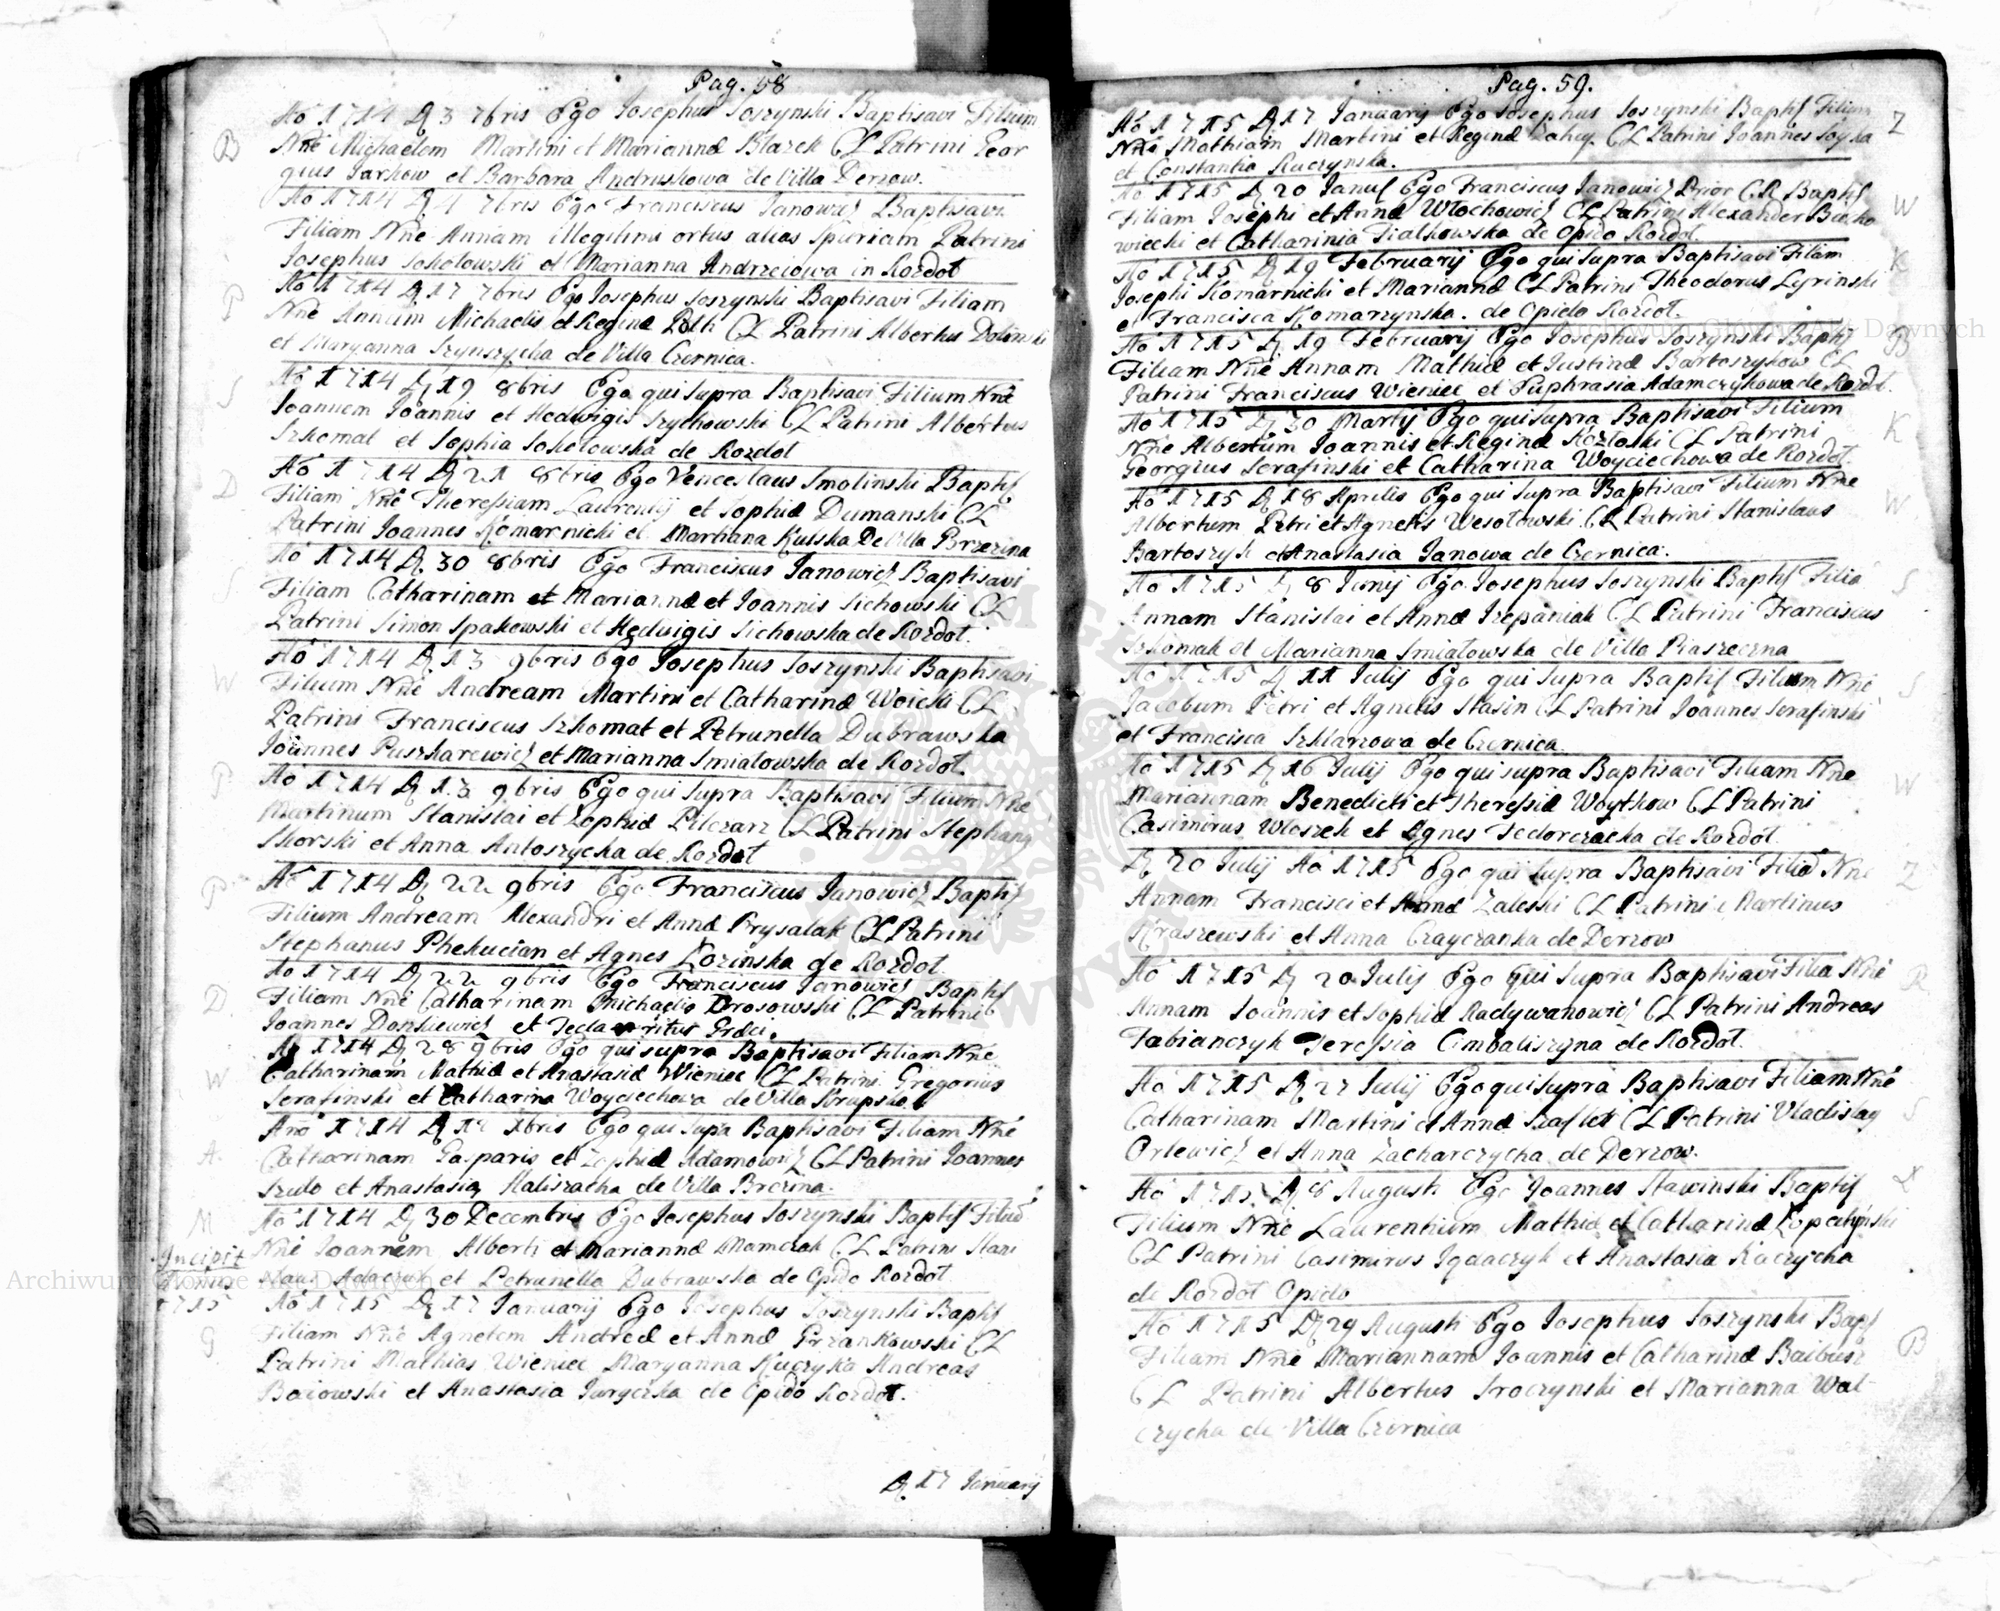 Pag. 58
Aō 1714 D 3 7bris Ego Josephus Soszynski Baptisavi Filium
B
Nnē Michaelem Martini et Mariannæ Blazek CL Patrini Geor
gius Jarkow et Barbara Andruskowa de Villa Derzow.
Aō 1714 D 4 7bris Ego Franciscus Janowicz Baptisavi
Filiam Nnē Annam illegitimi ortus alias spuriam Patrini
Josephus Sokolowski et Marianna Andrzeiowa in Rozdoł
Aō 1714 D 17 7bris Ego Josephus Soszynski Baptisavi Filiam
P
Nnē Annam Michaelis et Reginæ CL Patrini Albertus Dolinski
et Maryanna de Villa Czernica.
Aō 1714 D 19 8bris Ego qui supra Baptisavi Filium Nnē
S
Joannem Joannis et Hedwigis Szychowski CL Patrini Albertus
Szkomal et Sophia Sokolowska de Rozdoł
Aō 1714 D 21 8bris Ego Venceslaus Smolinski Baptis
D
Filiam Nnē Theressiam Laurentij et Sophiæ Dumanski CL
Patrini Joannes Komarnicki et Marianna Kulska De Villa Brzezina
Aō 1714 D. 30 8bris Ego Franciscus Janowicz Baptisavi
S
Filiam Catharinam et Mariannæ et Joannis Sichowski CL
Patrini Simon Spakowski et Hedwigis Sichowska de Rozdoł.
Aō 1714 D 13 9bris Ego Josephus Soszynski Baptisavi
W
Filium Nnē Andream Martini et Catharinæ Woicki CL
Patrini Franciscus Szkomat et Petrunella Dubrawska
Joannes Puszkarewicz et Marianna Smiatowska de Rozdoł.
Aō 1714 D 13 9bris Ego qui supra Baptisavi Filium Nnē
P
Martinum Stanislai et Zophiæ Pilczarz CL Patrini Stephang
Skorski et Anna Antoszycka de Rozdoł
Aō 1714 D 22 9bris Ego Franciscus Janowicz Baptis
P
Filium Andream Alexandri et Annæ Prysalak CL Patrini
Stephanus Phekucian et Agnes Lozinska de Rozdoł.
Aō 1714 D 22 9bris Ego Franciscus Janowicz Baptis
D
Filiam Nnē Catharinam Michaelis Drosowski CL Patrini
Joannes Doskiewicz et Tecla ritus Græci.
Aō 1714 D 28 9bris Ego qui supra Baptisavi Filiam Nnē
W
Catharinam Mathiæ et Anastasiæ Wieniec CL Patrini Gregorius
Serafinski et Catharina Woyciechowa de Villa Krupsko
Anō 1714 D 12 Xbris Ego qui supra Baptisavi Filiam Nnē
A.
Catharinam Gasparis et Zophiæ Adamowicz CL Patrini Joannes
Szulo et Anastasia Kaliszatka de Villa Brezina.
Aō 1714 D 30 Decembris Ego Josephus Soszynski Baptis Filiū
M
Nnē Joannem Alberti et Mariannæ Mamczak CL Patrini Stani
slaus et Petrunella Dubrawska de Opido Rozdoł.
Incipit
Annus
1715
Aō 1715 D 17 Januarij Ego Josephus Soszynski Baptis
G
Filiam Nnē Agnetem Andreæ et Annæ Grzankowski CL
Patrini Mathias Wieniec Maryanna Kuczyka Andreas
Baiowski et Anastasia Juryczka de Opido Rozdoł.
D 17 Januarij
Pag. 59.
Aō 1715 D 17 Januarij Ego Josephus Soszynski Baptis Filium
Z
Nnē Mathiam Martini et Reginæ CL Patrini Joannes
et Constantia Kuczynska.
Aō 1715 D 20 Januis Ego Franciscus Janowicz Prior C.R. Baptis
W
Filiam Josephi et Annæ Włochowicz CL Patrini Alexander Binko
wiecki et Catharinia Fialkowska de Opido Rozdoł.
Aō 1715 D 19 Februarij Ego qui supra Baptisavi Filiam
K
Josephi Komarnicki et Mariannæ CL Patrini Theodorus Lyrinski
et Francisca Komarzynska. de Opido Rozdoł.
Aō 1715 D 19 Februarij Ego Josephus Soszynski Baptis
B
Filiam Nnē Annam Mathiæ et Justinæ Bartoszykow CL
Patrini Franciscus Wieniec et Euphrasia Adamczykowa de Rozdł.
Aō 1715 D 30 Martij Ego qui supra Baptisavi Filium
K
Nnē Albertum Joannis et Reginæ Kozloski CL Patrini
Georgius Serafinski et Catharina Woyciechowa de Rozdoł.
Aō 1715 D 18 Aprilis Ego qui supra Baptisavi Filium Nnē
W
Albertum Petri et Agnetis Wesołowski CL Patrini Stanislaus
Bartoszyk et Anastasia Janowa de Czernica.
Aō 1715 D 8 Junij Ego Josephus Soszynski Baptis Filiā
S
Annam Stanislai et Annæ Szepaniak CL Patrini Franciscus
Szkomak et Marianna Smiatowska de Villa Piaszeczna
Aō 1715 D 11 Julij Ego qui supra Baptis Filium Nnē
S
Jacobum Petri et Agnetis Stasin CL Patrini Joannes Serafinski
et Francisca Szklarzowa de Czernica.
Aō 1715 D 16 Julij Ego qui supra Baptisavi Filiam Nnē
W
Mariannam Benedicti et Theressiæ Woytkow CL Patrini
Casimirus Wloszek et Agnes Fedorczacka de Rozdoł.
D 20 Julij Aō 1715 Ego qui supra Baptisavi Filiā Nnē
Z
Annam Francisci et Annæ Zaleski CL Patrini Martinus
Kraszewski et Anna Czayczanka de Derzow
Aō 1715 D 20 Julij Ego qui supra Baptisavi Filiā Nnē
R
Annam Joannis et Sophiæ Radywanowicz CL Patrini Andreas
Fabianczyk Teressia Cimbaliszyna de Rozdoł.
Aō 1715 D 27 Julij Ego qui supra Baptisavi Filiam Nnē
S
Catharinam Martini et Annæ CL Patrini Vladislag
Orlewicz et Anna Zacharczycha de Derzow.
Aō 1715 D 8 Augusti Ego Joannes Stawinski Baptis
Ł
Filium Nnē Laurentium Mathiæ et Catharinæ Lopatynski
CL Patrini Casimirus Igdaczyk et Anastasia Kaczycha
de Rozdoł Opido
Aō 1715 D 29 Augusti Ego Josephus Soszynski Bapt
B
Filiam Nnē Mariannam Joannis et Catharinæ Baibusz
CL Patrini Albertus Sroczynski et Marianna Wal-
czycha de Villa Czernica
Archiwum Główne Akt Dawnych
Archiwum Główne Akt Dawnych